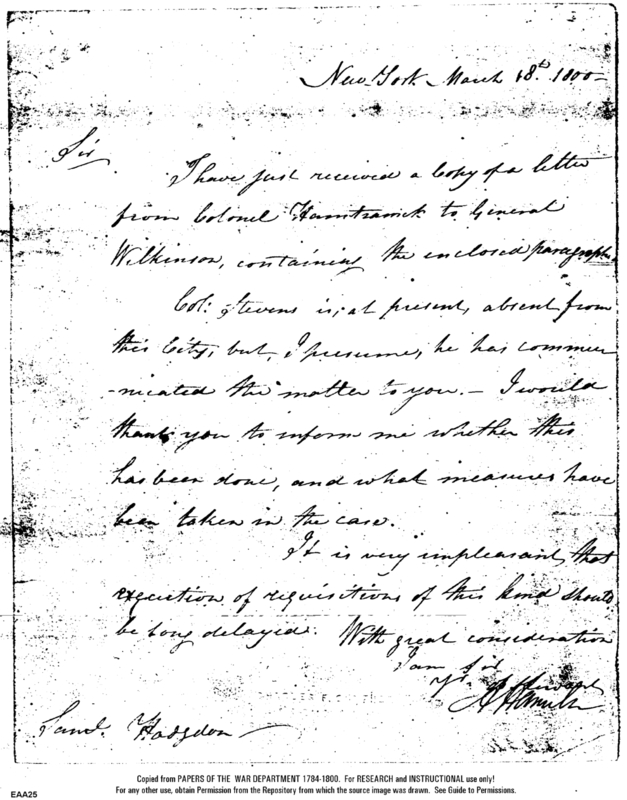 New York March 18th. 1800-
Sir
I have just received a Copy of a letter
from Colonel Hamtramck to General
Wilkinson, containing the enclosed paragraph.
Col: Stevens is, at present, absent from
this City; but, I presume, he has commu
-nicated the matter to you. - I would
thank you to inform me whether this
has been done, and what measures have
been taken in the case.
It is very unpleasant that
execution of requisitions of this kind should
be long delayed. With great consideration
I am Sir
Yr.
A Hamilton
Saml. Hodgdon
Copied from PAPERS OF THE WAR DEPARTMENT 1784-1800. For RESEARCH and INSTRUCTIONAL use only!
For any other use, obtain Permission from the Repository from which the source image was drawn. See Guide to Permissions.
EAA25